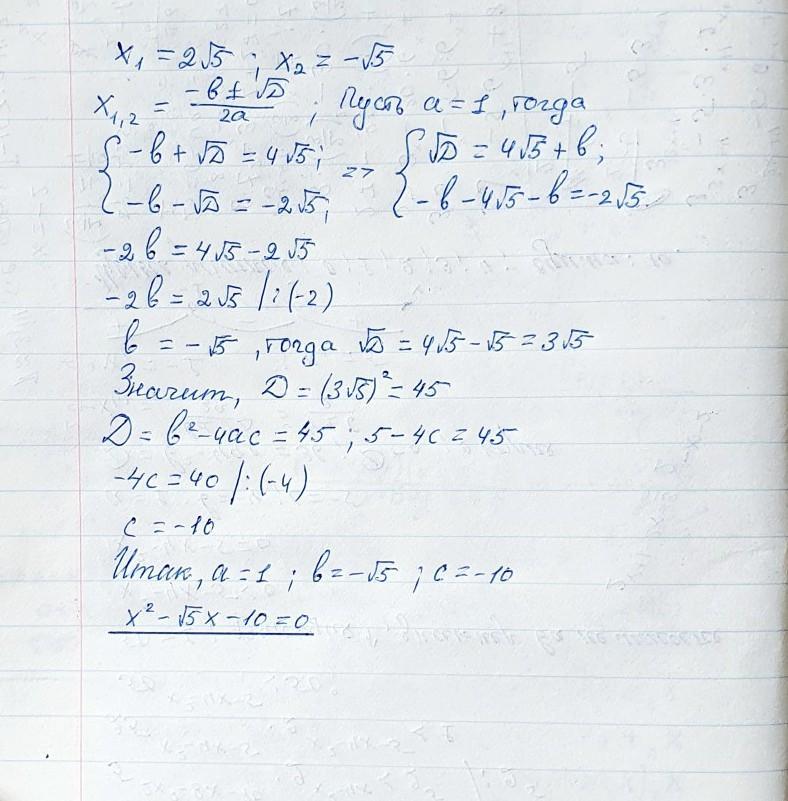 x₁ = 2√5 ; x₂ = -√5
x₁,₂ = (-b ± √D)/2a ; Пусть a = 1, тогда
{ -b + √D = 4√5; => { √D = 4√5 + b;
{ -b - √D = -2√5; { -b - 4√5 - b = -2√5.
-2b = 4√5 - 2√5
-2b = 2√5 /:(-2)
b = -√5, тогда √D = 4√5 - √5 = 3√5
Значит, D = (3√5)² = 45
D = b² - 4ac = 45 ; 5 - 4c = 45
-4c = 40 /:(-4)
c = -10
Итак, a = 1 ; b = -√5 ; c = -10
x² - √5x - 10 = 0